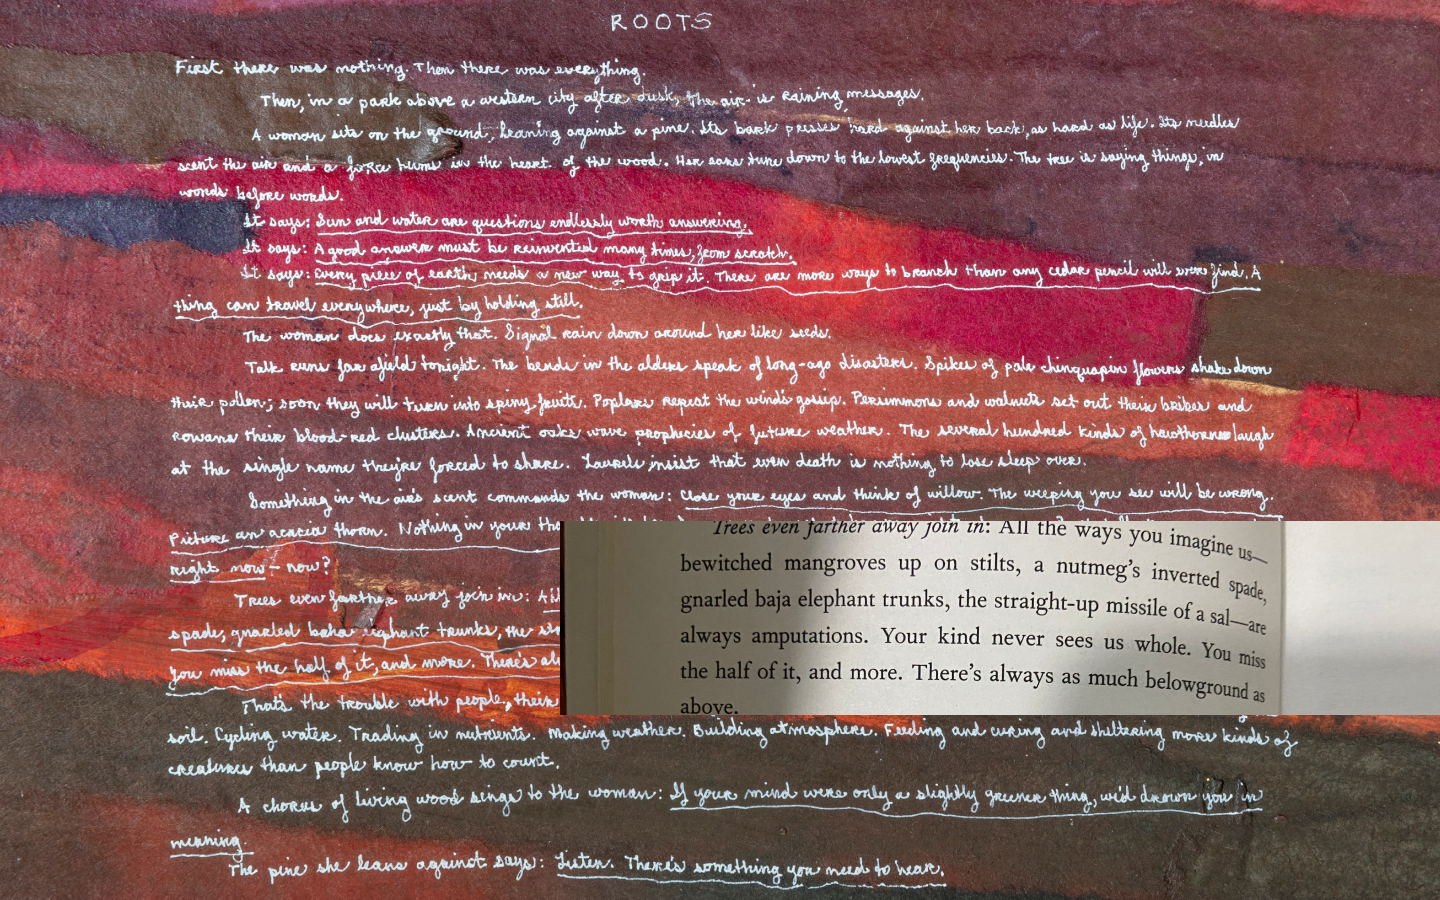 ROOTS
First there was nothing. Then there was everything.
Then, in a park above a western city after dusk, the air is raining messages.
A woman sits on the ground, leaning against a pine. Its bark presses hard against her back, as hard as life. Its needles
scent the air and a force hums in the heart of the wood. Her ears tune down to the lowest frequencies. The tree is saying things, in
words before words.
It says: Sun and water are questions endlessly worth answering.
It says: A good answer must be reinvented many times, from scratch.
It says: Every piece of earth needs a new way to grip it. There are more ways to branch than any cedar pencil will ever find. A
thing can travel everywhere, just by holding still.
The woman does exactly that. Signal rain down around her like seeds.
Talk runs far afield tonight. The bends in the alders speak of long-ago disasters. Spikes of pale chinquapin flowers shake down
their pollen; soon they will turn into spiny fruits. Poplars repeat the wind's gossip. Persimmons and walnuts set out their bribes and
rowans their blood-red clusters. Ancient oaks wave prophecies of future weather. The several hundred kinds of hawthorne laugh
at the single name they're forced to share. Laurels insist that even death is nothing to lose sleep over.
Something in the air's scent commands the woman: Close your eyes and think of willow. The weeping you see will be wrong.
Picture an acacia thorn. Nothing in your
right now – now?
Trees even farther away join in:
spade, gnarled elephant trunks, the
you miss the half of it, and more. There's
That's the trouble with people, their
soil. Cycling water. Trading in nutrients. Making weather. Building atmosphere. Feeding and curing and sheltering more kinds of
creatures than people know how to count.
A chorus of living wood sings to the woman: If your mind were only a slightly greener thing, we'd drown you in
meaning.
The pine she leans against says: Listen. There's something you need to hear.
Trees even farther away join in: All the ways you imagine us—
bewitched mangroves up on stilts, a nutmeg's inverted spade,
gnarled baja elephant trunks, the straight-up missile of a sal—are
always amputations. Your kind never sees us whole. You miss
the half of it, and more. There's always as much belowground as
above.